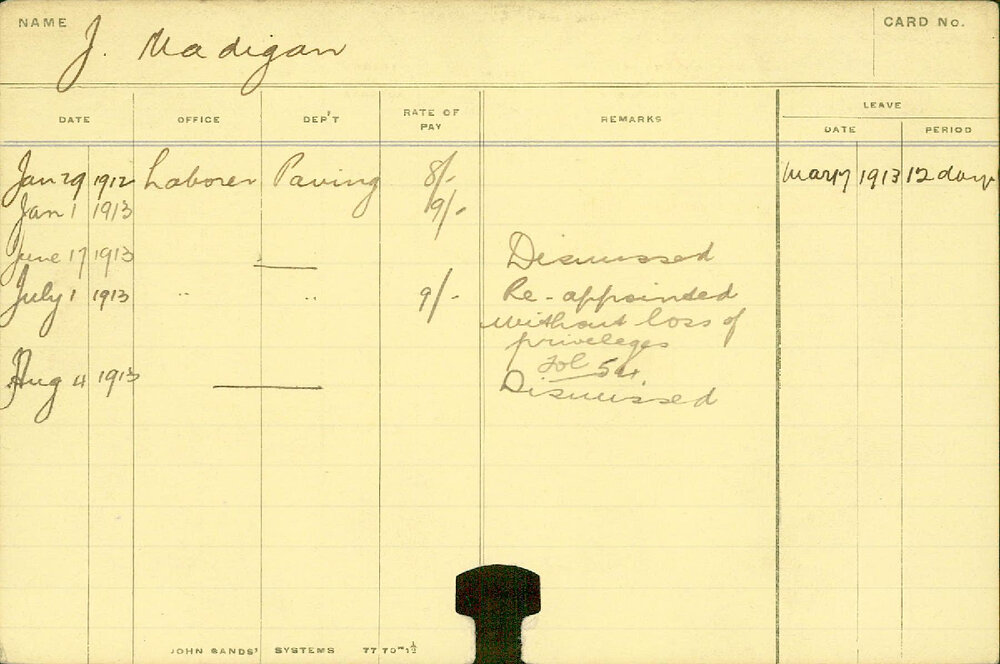 NAME J. Madigan CARD No.
DATE OFFICE DEP'T RATE OF PAY REMARKS LEAVE
DATE PERIOD
Jan 29 1912 Laborer Paving 8/- Mar 17 1913 12 days
Jan 1 1913 9/-
June 17 1913 — Dismissed
July 1 1913 " " 9/- Re-appointed
without loss of
privileges
fol 54.
Aug 4 1913 — Dismissed
JOHN SANDS' SYSTEMS 77 70